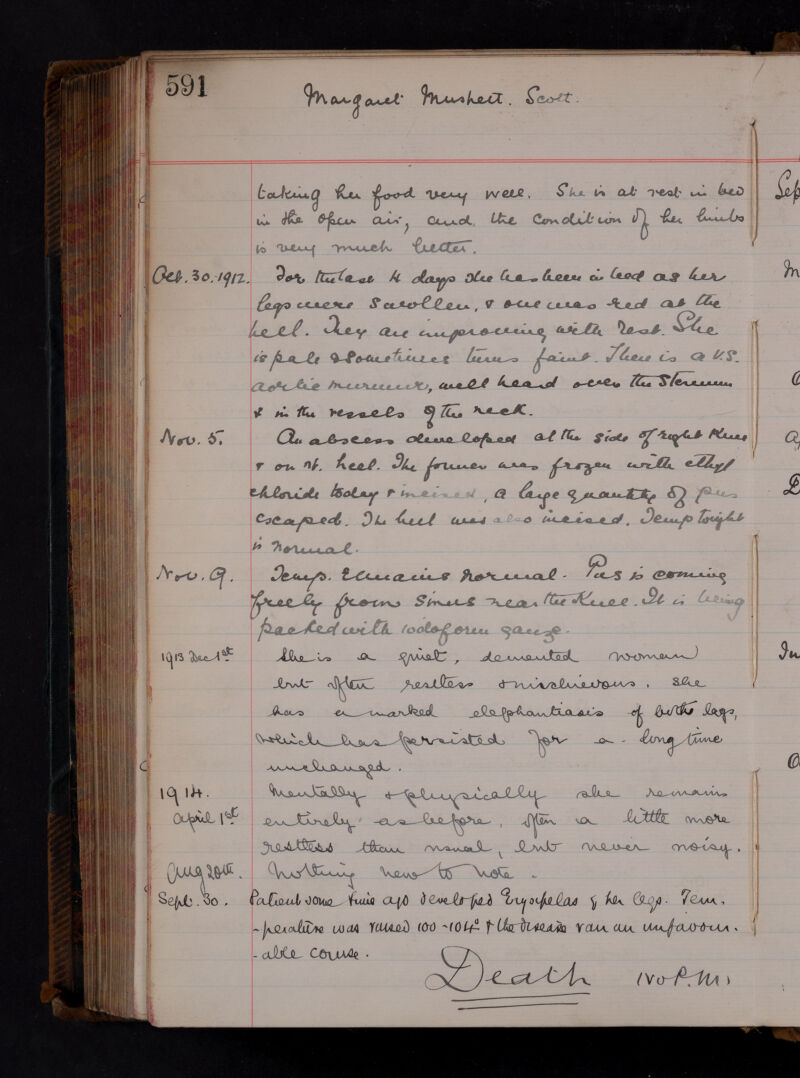 591
Margaret Mushett. Scott.
taking her food very well. She is at rest in bed
in the open air, and the condition of her limbs
is very much better.
Oct. 30. 1912. For the last 4 days she has been in bed as her
legs were swollen, & one was red at the
heel. They are improving with rest. She
is pale & sometimes turns faint. There is a V.S.
aortic murmur, well heard over the sternum
& in the vessels of the neck.
Nov. 5. An abscess developed at the side of right knee
& on rt. heel. The former was frozen with ethyl
chloride today & incised, a large quantity of pus
escaped. The heel was also incised. Temp tonight
is normal.
Nov. 9. Temp. remains normal. Pus is coming
freely from sinus near the knee. It is being
packed with iodoform gauze.
1913 Dec 1st She is a quiet, demented woman
but often restless & mischievous. She
has a marked elephantiasis of both legs,
which has persisted for a long time
unchanged.
1914. Mentally & physically she remains
April 1st entirely as before, often a little more
restless than usual, but never noisy.
Aug 20th. Nothing new to note.
Sept. 30. Patient some time ago developed Erysipelas of her legs. Tem-
-perature was raised 100-104° & the disease ran an unfavour-
-able course.
Death (No P.M.)
Sep